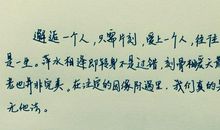 邂逅一个人，只需片刻，爱上一个人，往往
是一生。萍水相逢即转身不是过错，刻骨相爱天荒
老也并非完美。在注定的因缘际遇里，我们真的是
无他法。